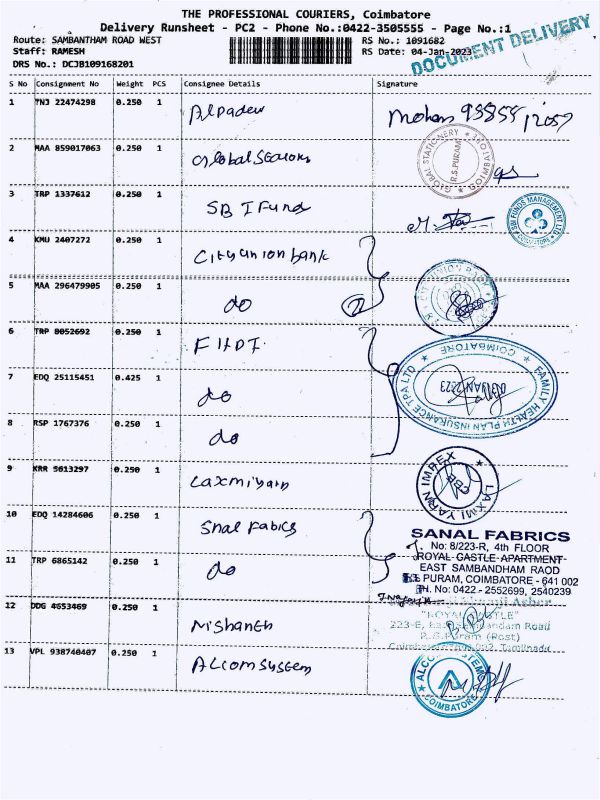 THE PROFESSIONAL COURIERS, Coimbatore
Delivery Runsheet - PC2 - Phone No.:0422-3505555 - Page No.:1
Route: SAMBANTHAM ROAD WEST
RS No.: 1091682
Staff: RAMESH
RS Date: 04-Jan-2023
DOCUMENT DELIVERY
DRS No.: DCJB109168201
S No Consignment No Weight PCS Consignee Details Signature
1 TNJ 22474298 0.250 1 Alpadew Mohan 93855 12057
2 MAA 859017063 0.250 1 Global Seasons
GLOBAL STATIONERY COIMBATORE
R.S.PURAM
3 TRP 1337612 0.250 1 SBI Fund
SBI FUNDS MANAGEMENT LTD
COIMBATORE
4 KMU 2407272 0.250 1 City union bank
5 MAA 296479905 0.250 1 do 2
UNION BANK
6 TRP 8052692 0.250 1 FHDI
FAMILY HEALTH PLAN INSURANCE TPA LTD
COIMBATORE
JAN 2023
7 EDQ 25115451 0.425 1 do
8 RSP 1767376 0.250 1 do
9 KRR 5613297 0.250 1 Laxmiyarn
LAXMI YARN IMPEX
CBE
10 EDQ 14284606 0.250 1 Snal Fabics
SANAL FABRICS
No: 8/223-R, 4th FLOOR
ROYAL CASTLE APARTMENT
EAST SAMBANDHAM RAOD
R.S PURAM, COIMBATORE - 641 002
PH. No: 0422 - 2552699, 2540239
11 TRP 6865142 0.250 1 do
12 DDG 4653469 0.250 1 Nishanth
"ROYAL CASTLE"
223-E, East Sambandam Road
R.S.Puram (Post)
13 VPL 938740407 0.250 1 Alcom System
ALCOM SYSTEMS
COIMBATORE